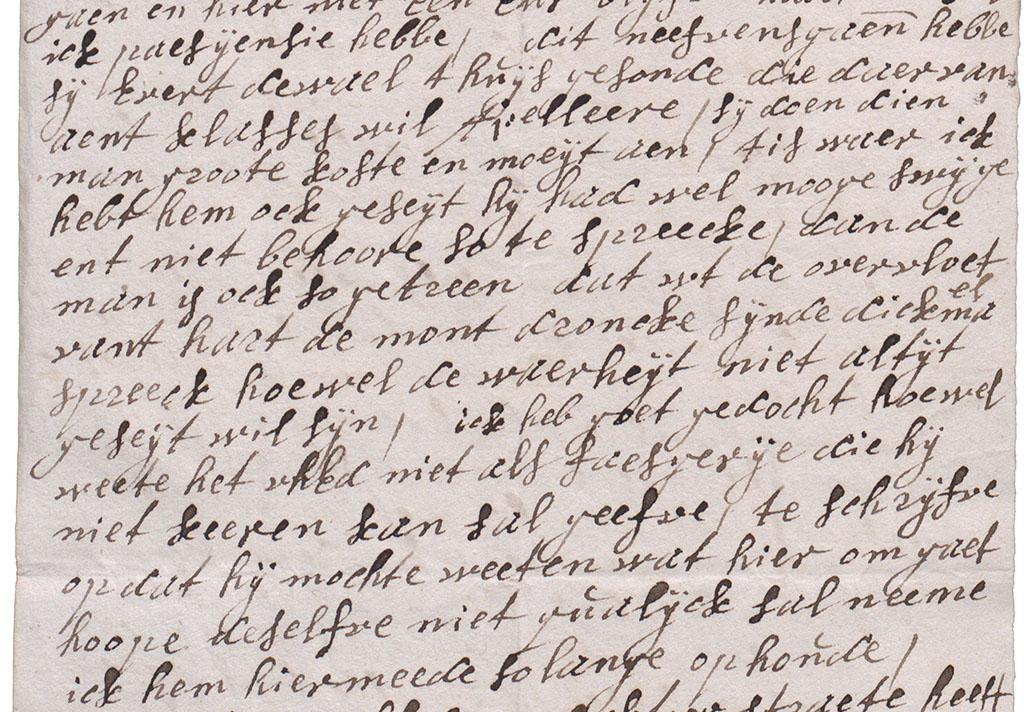 gaen en hier met een
ick paesyensie hebbe / dit neefvensgaen hebbe
sy Evert dewael t huys gesonde die daer van
aent klasses wil apelleere / sy doen dien
man groote koste en moeyt aen / tis waer ick
hebt hem ock geseyt hy had wel mooge swyge
ent niet behoore so te spreecke / dan de
man is ock so getreen dat wt de overvloet
vant hart de mont droncke synde dickmael
spreeck hoewel de waerheyt niet altyt
geseyt wil syn / ick heb goet gedocht hoewel
weete het uhEd niet als faesgerye die hy
niet keeren kan sal geefve / te schryfve
op dat hy mochte weeten wat hier om gaet
hoope deselfve niet qualyck sal neeme
ick hem hiermeede so lange ophoude /
straete heeft